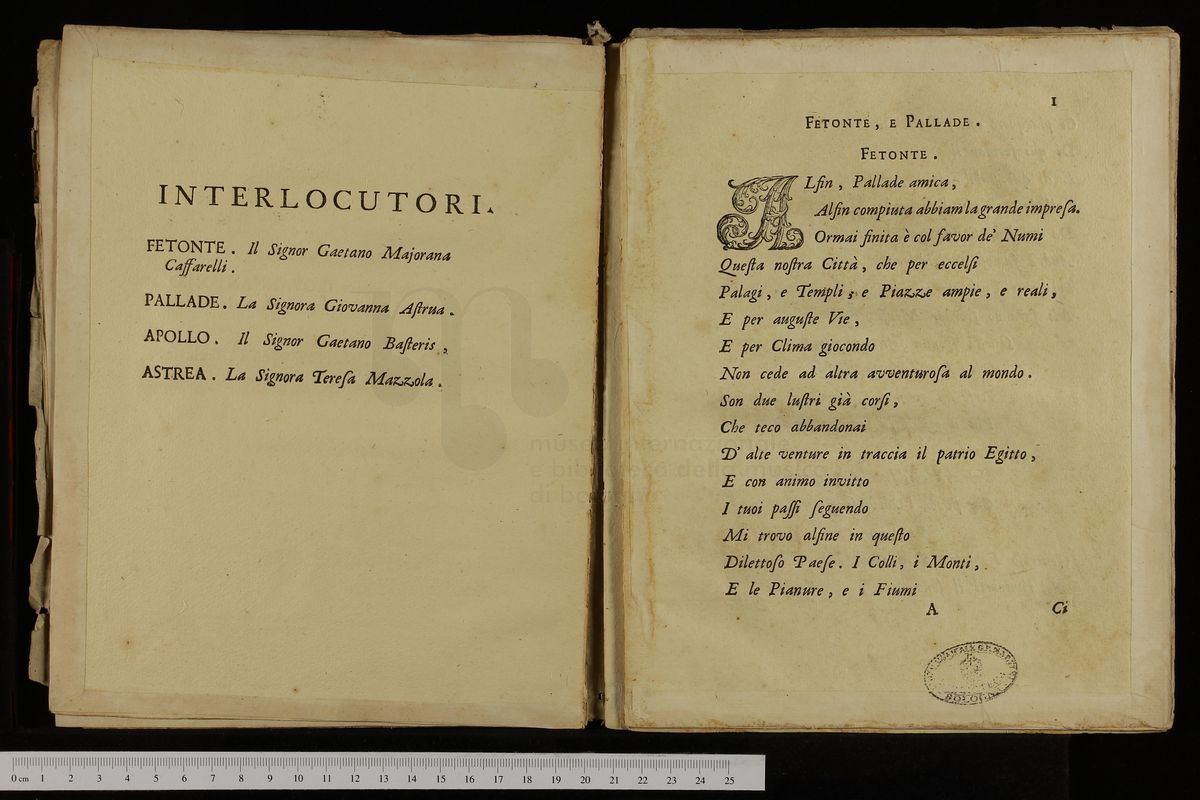 INTERLOCUTORI.
FETONTE. Il Signor Gaetano Majorana
Caffarelli.
PALLADE. La Signora Giovanna Aſtrua.
APOLLO. Il Signor Gaetano Baſteris,
ASTREA. La Signora Tereſa Mazzola.
1
FETONTE, E PALLADE.
FETONTE.
ALfin, Pallade amica,
Alfin compiuta abbiam la grande impreſa.
Ormai finita è col favor de' Numi
Queſta noſtra Città, che per eccelſi
Palagi, e Templi, e Piazze ampie, e reali,
E per auguſte Vie,
E per Clima giocondo
Non cede ad altra avventuroſa al mondo.
Son due luſtri già corſi,
Che teco abbandonai
D' alte venture in traccia il patrio Egitto,
E con animo invitto
I tuoi paſſi ſeguendo
Mi trovo alfine in queſto
Dilettoſo Paeſe. I Colli, i Monti,
E le Pianure, e i Fiumi
A Ci
BOLOGNA
museo internazionale
e biblioteca della musica
di bologna
0 cm 1 2 3 4 5 6 7 8 9 10 11 12 13 14 15 16 17 18 19 20 21 22 23 24 25